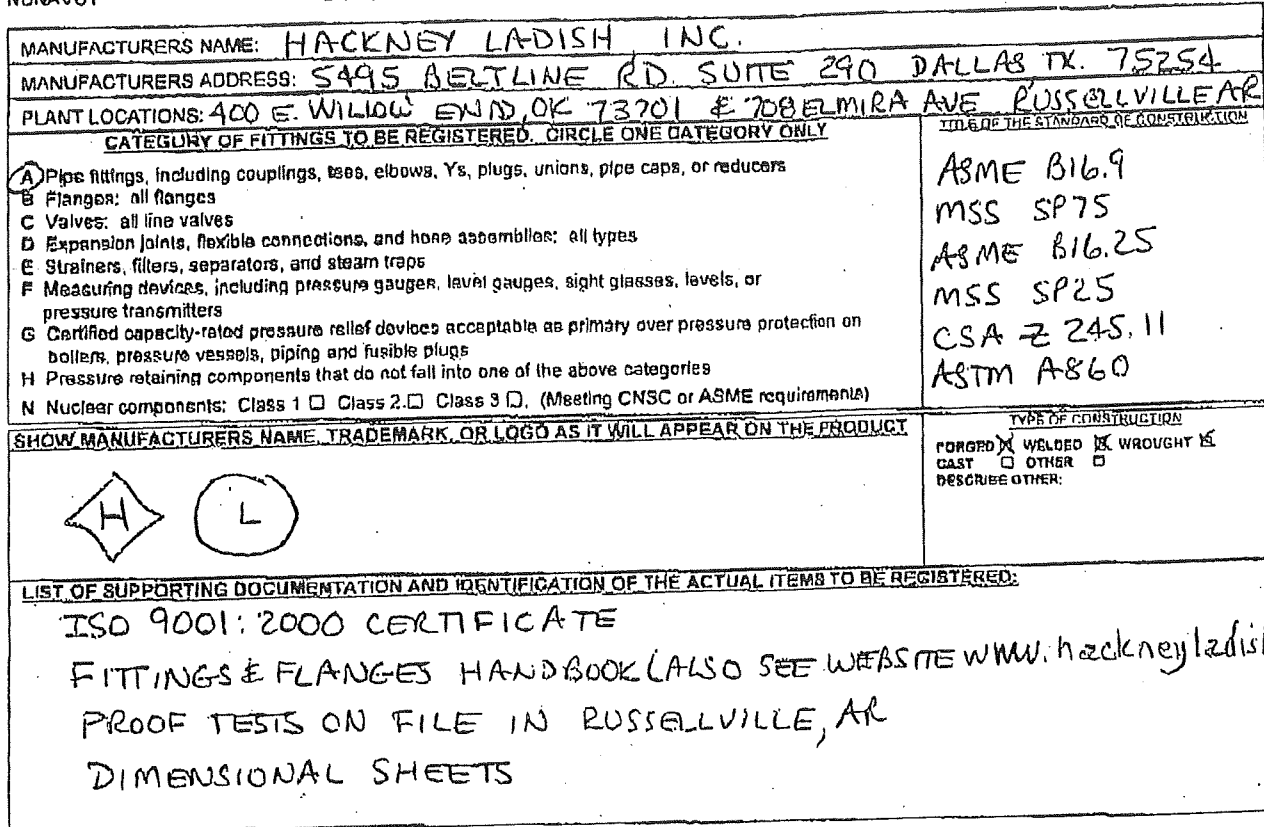 MANUFACTURERS NAME: HACKNEY LADISH INC.
MANUFACTURERS ADDRESS: 5495 BELTLINE RD. SUITE 290 DALLAS TX. 75254
PLANT LOCATIONS: 400 E. WILLOW ENID, OK 73701 & 708 ELMIRA AVE RUSSELLVILLE AR
CATEGORY OF FITTINGS TO BE REGISTERED. CIRCLE ONE CATEGORY ONLY
A Pipe fittings, including couplings, tees, elbows, Ys, plugs, unions, pipe caps, or reducers
B Flanges: all flanges
C Valves: all line valves
D Expansion joints, flexible connections, and hose assemblies: all types
E Strainers, filters, separators, and steam traps
F Measuring devices, including pressure gauges, level gauges, sight glasses, levels, or
pressure transmitters
G Certified capacity-rated pressure relief devices acceptable as primary over pressure protection on
boilers, pressure vessels, piping and fusible plugs
H Pressure retaining components that do not fall into one of the above categories
N Nuclear components: Class 1 ☐ Class 2.☐ Class 3 ☐. (Meeting CNSC or ASME requirements)
TITLE OF THE STANDARD OF CONSTRUCTION
ASME B16.9
MSS SP75
ASME B16.25
MSS SP25
CSA Z 245.11
ASTM A860
SHOW MANUFACTURERS NAME, TRADEMARK, OR LOGO AS IT WILL APPEAR ON THE PRODUCT
H L
TYPE OF CONSTRUCTION
FORGED ☒ WELDED ☒ WROUGHT ☒
CAST ☐ OTHER ☐
DESCRIBE OTHER:
LIST OF SUPPORTING DOCUMENTATION AND IDENTIFICATION OF THE ACTUAL ITEMS TO BE REGISTERED:
ISO 9001:2000 CERTIFICATE
FITTINGS & FLANGES HANDBOOK (ALSO SEE WEBSITE WWW.hackneyladish
PROOF TESTS ON FILE IN RUSSELLVILLE, AR
DIMENSIONAL SHEETS